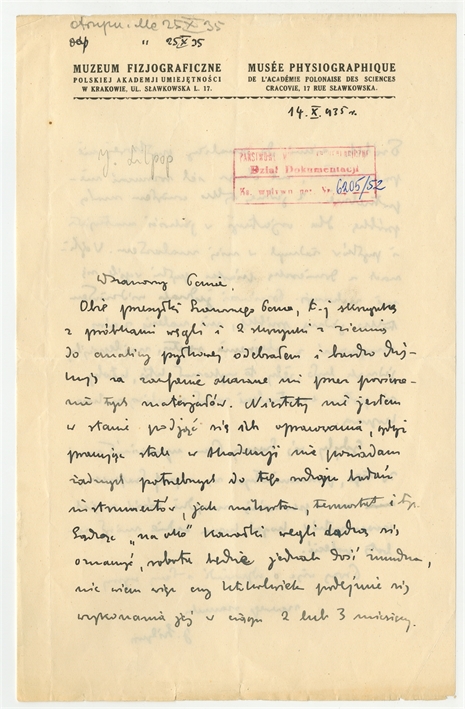 otrzym. dn 25 X 35
odp " 25 X 35
MUZEUM FIZJOGRAFICZNE
POLSKIEJ AKADEMJI UMIEJĘTNOŚCI
W KRAKOWIE, UL. SŁAWKOWSKA L. 17.
MUSÉE PHYSIOGRAPHIQUE
DE L'ACADÉMIE POLONAISE DES SCIENCES
CRACOVIE, 17 RUE SŁAWKOWSKA.
14. X. 935 r.
J. Lilpop
PAŃSTWOWE
Dział Dokumentacji
Ks. wpływu poz. Nr. 6205/52
Szanowny Panie.
Obie przesyłki Szanownego Pana, t.j. skrzynkę
z próbkami węgli i 2 skrzynki z ziemią
do analizy pyłkowej odebrałem i bardzo dzię-
kuję za zaufanie okazane mi przez powierze-
nie tych materjałów. Niestety nie jestem
w stanie podjąć się ich opracowania, gdyż
pracując stale w Akademji nie posiadam
żadnych potrzebnych do tego rodzaju badań
instrumentów, jak mikrotom, termostat i t.p.
Sądząc „na oko" kawałki węgli dadzą się
oznaczyć, robota będzie jednak dość żmudna,
nie wiem więc czy ktokolwiek podejmie się
wykonania jej w ciągu 2 lub 3 miesięcy.